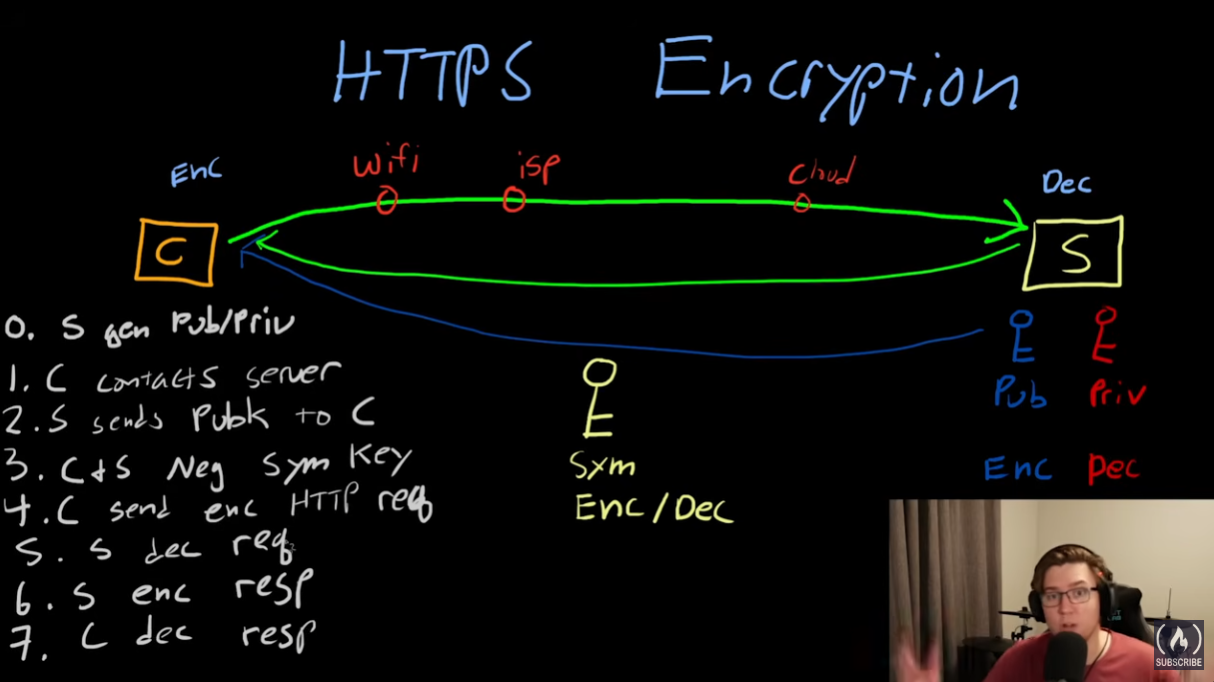 HTTPS Encryption
Enc
wifi
isp
cloud
Dec
C
S
0. S gen Pub/Priv
1. C contacts server
2. S sends PubK to C
3. C+S Neg Sym Key
4. C send enc HTTP req
5. S dec req
6. S enc resp
7. C dec resp
Sym
Enc/Dec
Pub Priv
Enc Dec
SUBSCRIBE